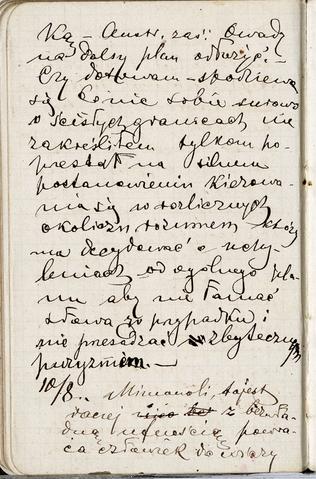 Ką – Austr. zaś. Owady
na dalszy plan odłożyć. –
Czy dotrwam – spodziewa
się bo nie sobie surowo
w ścisłych granicach nie
zakreśliłem tylkom po-
przestał na silnem
postanowieniu kierowa-
nia się w rozlicznych
okoliczn rozumem który
ma decydować o uchy-
leniach od ogólnego pla-
nu aby nie łamać
słowa przypadku i
nie przesadzać zbytecznym
puryzmem. –
10/8.. Mimowoli, to jest
raczej z bezwła-
dną powra-
ca człowiek do wiary